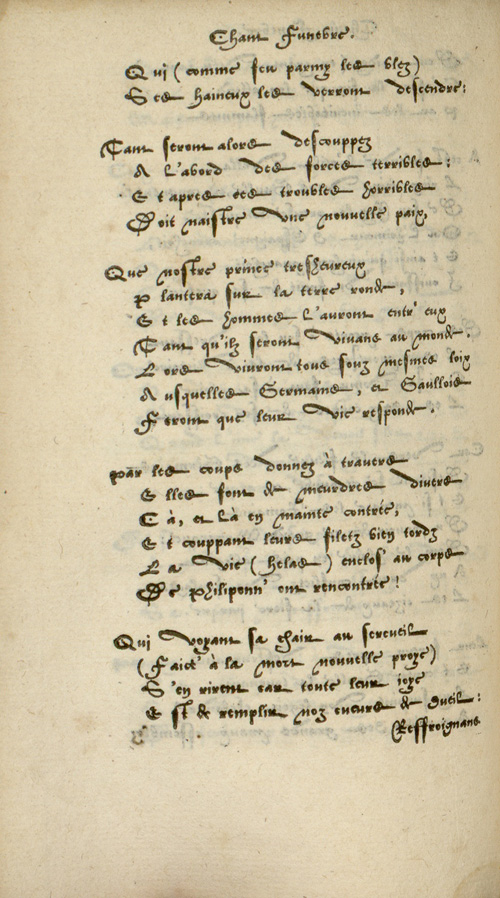 Chant Funebre.
Qui (comme feu parmy les blez)
Ses haineux les verront descendre:
Tant seront alors descouppez
A l'abord des forces terribles:
Et apres ces troubles horribles
Doit naistre une nouvelle paix,
Que nostre prince tresheureux
Plantera sur la terre ronde,
Et les hommes l'auront entr' eux
Tant qu'ilz seront vivans au monde.
Lors vivront tous souz mesmes loix
Ausquelles Germains, et Gaullois
Feront que leur vie responde.
Par les coups donnez à travers
Elles font de meurdres divers
Cà, et là en mainte contrée,
Et couppant leurs filetz bien tordz
La vie (helas) enclos' au corps
De Philiponn' ont rencontrée!
Qui voyant sa chair au serceuil
(Faict' à la mort nouvelle proye)
S'en rirent car toute leur joye
Est de remplir noz cueurs de dueil:
Reffroignans